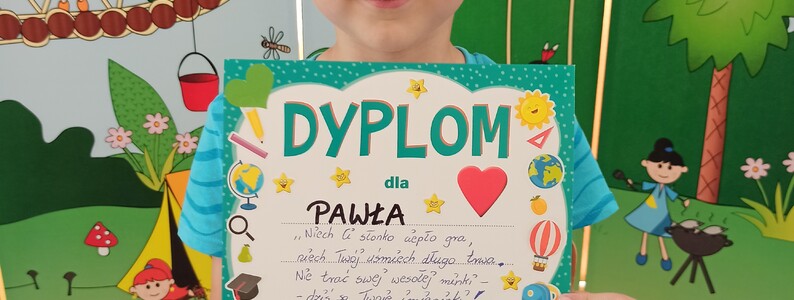 DYPLOM
dla
PAWŁA
„Niech Ci słonko ciepło gra,
niech Twój uśmiech długo trwa.
Nie trać swej wesołej minki –
- dziś są Twoje imieninki!